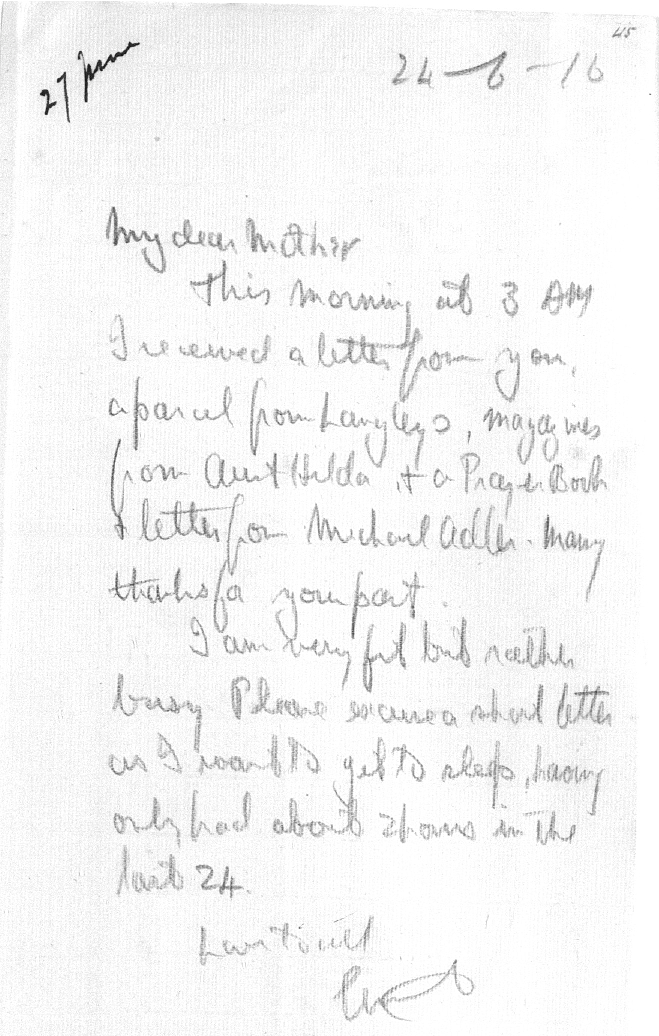 45
27 June
24-6-16
My dear Mother
This morning at 3 AM
I received a letter from you,
a parcel from Langleys, magazines
from Aunt Hilda, & a Prayer Book
& letter from Michael Adler. Many
thanks for your part.
I am very fit but rather
busy Please excuse a short letter
as I want to get to sleep, having
only had about 2 hours in the
last 24.
Love to all